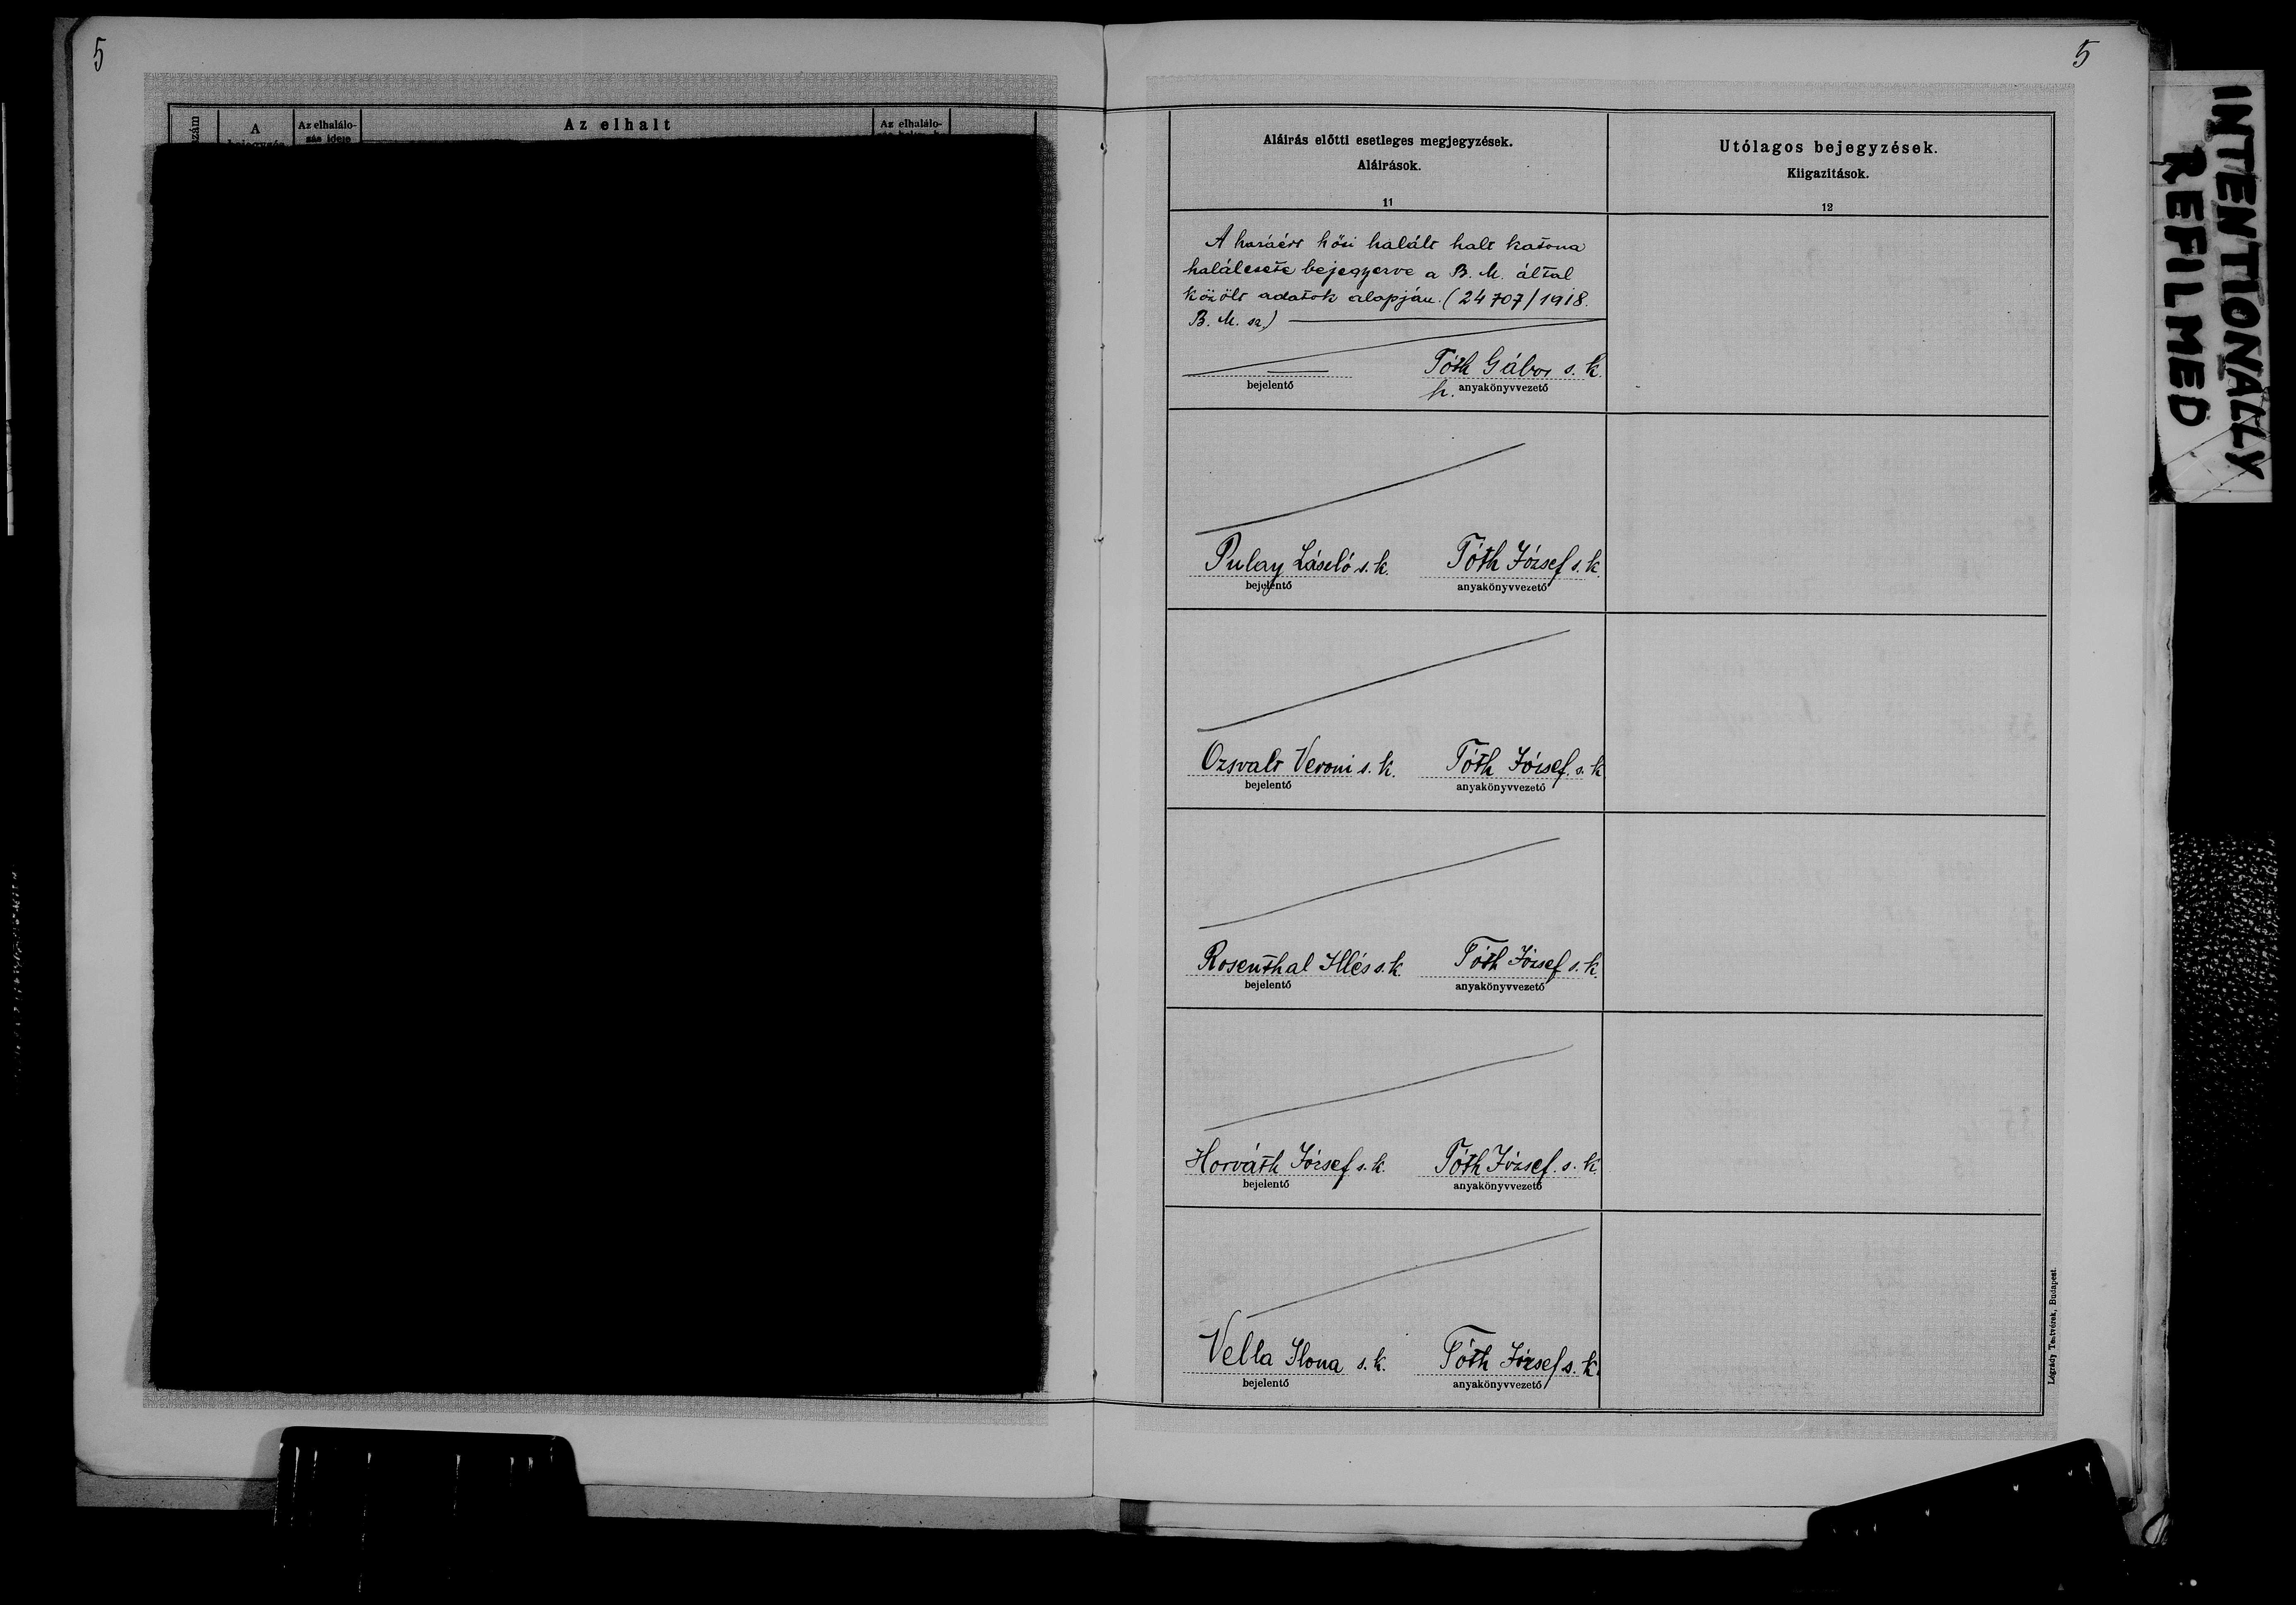 5
5
szám
A
Az elhalálo-
zás ideje
Az elhalt
Az elhalálo-
Aláirás előtti esetleges megjegyzések.
Aláirások.
11
Utólagos bejegyzések.
Kiigazitások.
12
A hazáért hősi halált halt katona
halálesete bejegyezve a B. M. által
közölt adatok alapján. (24707/1918.
B. M. sz.)
Tóth Gábor s. k.
bejelentő
h. anyakönyvvezető
Pulay László s. k. Tóth József s. k.
bejelentő anyakönyvvezető
Ozsvalt Veroni s. k. Tóth József s. k.
bejelentő anyakönyvvezető
Rosenthal Illés s. k. Tóth József s. k.
bejelentő anyakönyvvezető
Horváth József s. k. Tóth József s. k.
bejelentő anyakönyvvezető
Vella Ilona s. k. Tóth József s. k.
bejelentő anyakönyvvezető
Légrády Testvérek, Budapest.
INTENTIONALLY
REFILMED